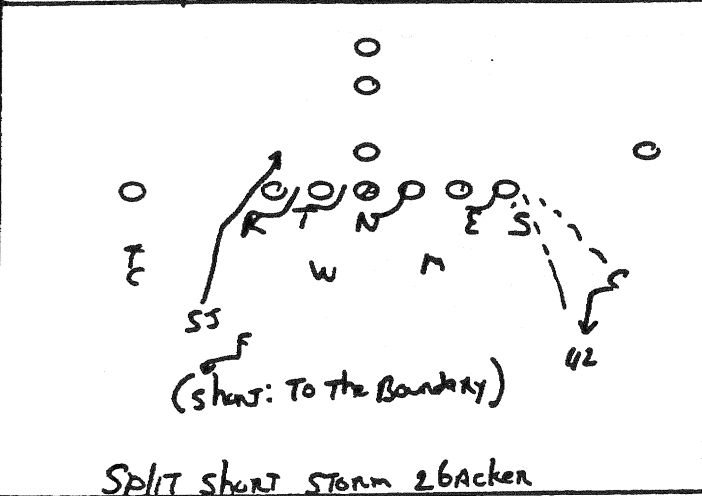 R T N E S
T
C
W M
C
SS
42
F
(Short: To The Boundary)
Split Short Storm 2backer